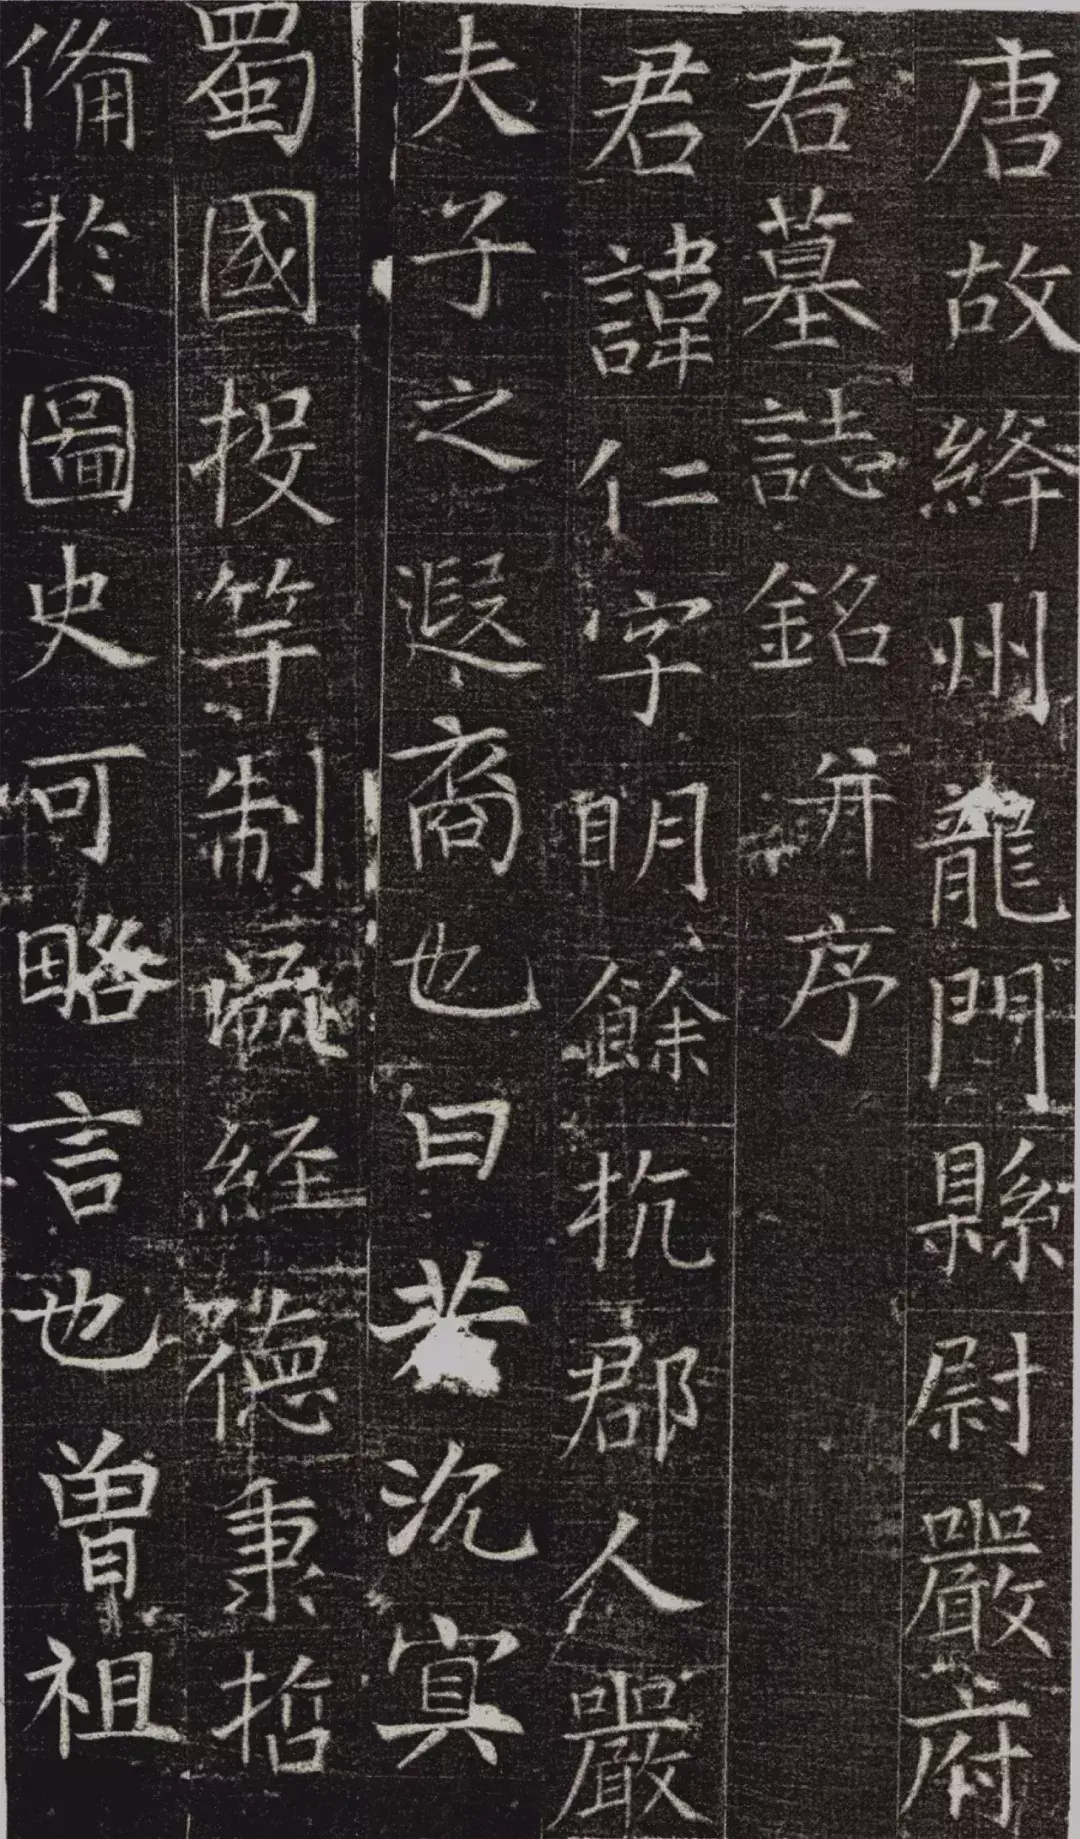 唐故絳州龍門縣尉嚴府
君墓誌銘并序
君諱仁字明餘杭郡人嚴
夫子之遐裔也曰若沉冥
蜀國投竿制經德秉哲
俻於圖史可略言也曾祖